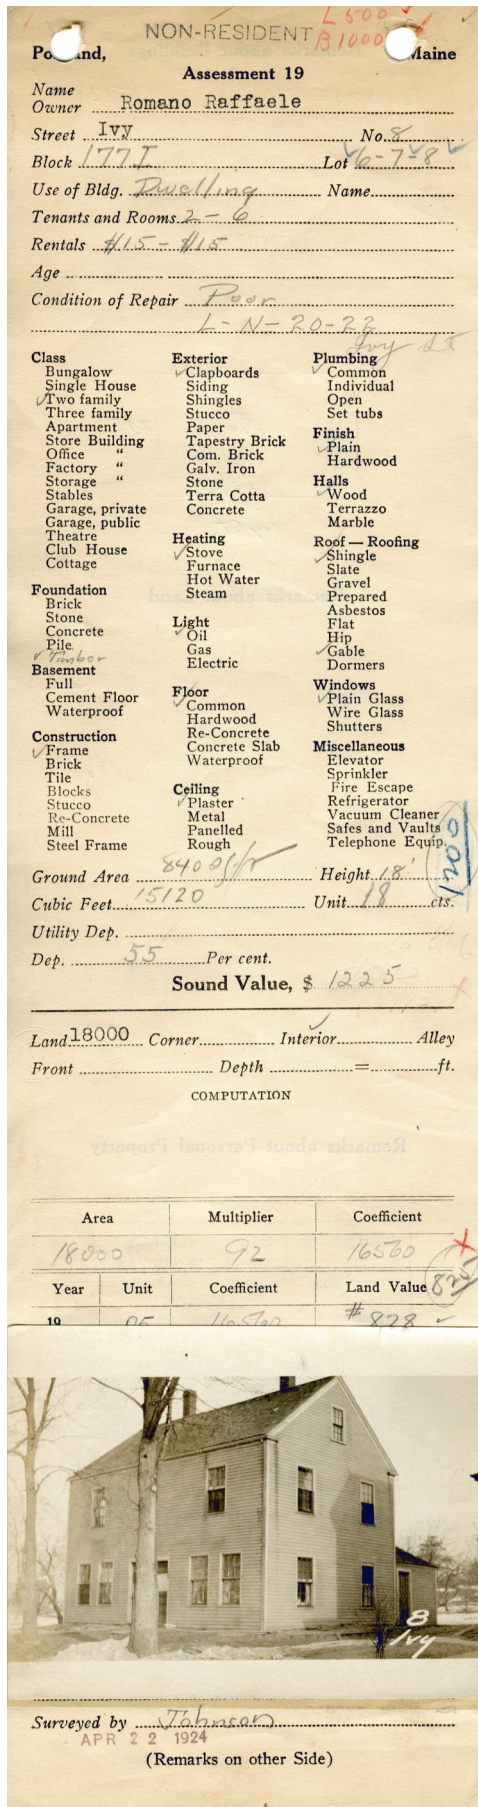 NON-RESIDENT
L 500
B 1000
Portland, Maine
Assessment 19
Name
Owner Romano Raffaele
Street Ivy No. 8
Block 177 I Lot 6-7-8
Use of Bldg. Dwelling Name
Tenants and Rooms 2-6
Rentals #15-#15
Age
Condition of Repair Poor
L-N-20-22
Ivy St
Class
Bungalow
Single House
✓Two family
Three family
Apartment
Store Building
Office "
Factory "
Storage "
Stables
Garage, private
Garage, public
Theatre
Club House
Cottage
Foundation
Brick
Stone
Concrete
Pile
✓Timber
Basement
Full
Cement Floor
Waterproof
Construction
✓Frame
Brick
Tile
Blocks
Stucco
Re-Concrete
Mill
Steel Frame
Exterior
✓Clapboards
Siding
Shingles
Stucco
Paper
Tapestry Brick
Com. Brick
Galv. Iron
Stone
Terra Cotta
Concrete
Heating
✓Stove
Furnace
Hot Water
Steam
Light
✓Oil
Gas
Electric
Floor
✓Common
Hardwood
Re-Concrete
Concrete Slab
Waterproof
Ceiling
✓Plaster
Metal
Panelled
Rough
Plumbing
✓Common
Individual
Open
Set tubs
Finish
✓Plain
Hardwood
Halls
✓Wood
Terrazzo
Marble
Roof — Roofing
✓Shingle
Slate
Gravel
Prepared
Asbestos
Flat
Hip
✓Gable
Dormers
Windows
✓Plain Glass
Wire Glass
Shutters
Miscellaneous
Elevator
Sprinkler
Fire Escape
Refrigerator
Vacuum Cleaner
Safes and Vaults
Telephone Equip.
Ground Area 840 Height 18'
Cubic Feet 15120 Unit 18 cts.
Utility Dep.
Dep. 55 Per cent.
Sound Value, $ 1225
Land 18000 Corner Interior ✓ Alley
Front Depth = ft.
COMPUTATION
Area Multiplier Coefficient
18000 92 16560
Year Unit Coefficient Land Value
825
19 05 16560 #828 ✓
8
Ivy
Surveyed by Johnson
APR 22 1924
(Remarks on other Side)